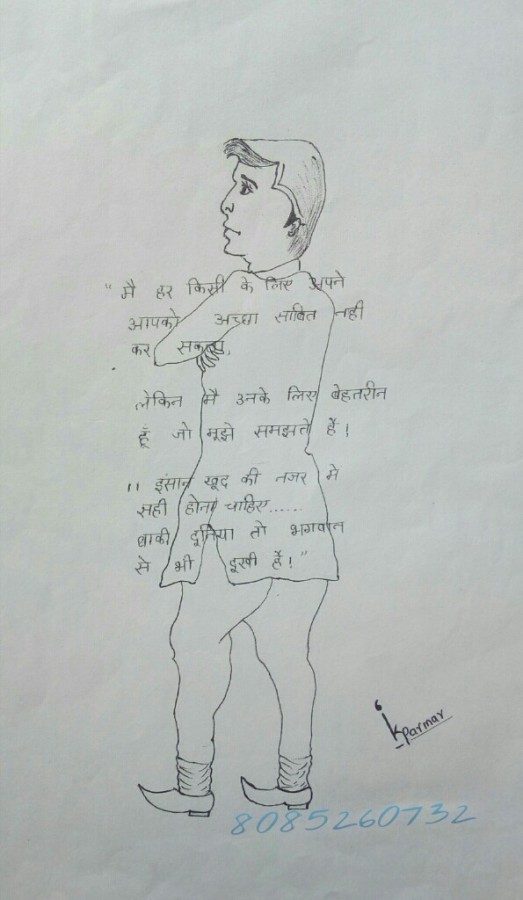 "मै हर किसी के लिए अपने
आपको अच्छा साबित नही
कर सकता,
लेकिन मै उनके लिए बेहतरीन
हूँ जो मूझे समझते हैं!
" इंसान खूद की नजर मे
सही होना चाहिए......
बाकी दूनिया तो भगवान
से भी दूखी हैं!"
kparmar
8085260732